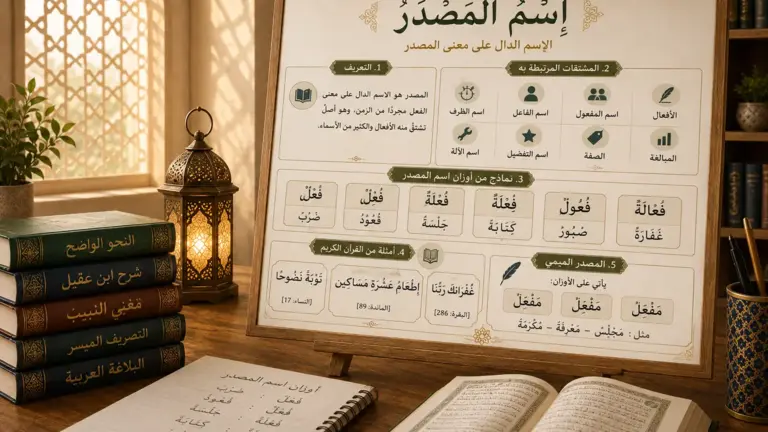 إِسْمُ المَصْدَرُ
الإسم الدال على معنى المصدر
1. التعريف
المصدر هو الاسم الدال على معنى
الفعل مجردًا من الزمن، وهو أصلٌ
تشتقُّ منه الأفعال والكثير من الأسماء.
2. المشتقات المرتبطة به
الأفعال
اسم المفعول
اسم الفاعل
اسم الظرف
المبالغة
الصفة
اسم التفضيل
اسم الآلة
3. نماذج من أوزان اسم المصدر
فُعَالَةٌ
غَفَارَةٌ
فُعُولٌ
صُبُورٌ
فِعْلَةٌ
كِتَابَةٌ
فُعْلَةٌ
جَلْسَةٌ
فُعْلٌ
قُعُودٌ
فُعْلٌ
ضَرْبٌ
4. أمثلة من القرآن الكريم
غُفْرَانَكَ رَبَّنَا
[البقرة: 286]
إِطْعَامُ عَشَرَةِ مَسَاكِين
[المائدة: 89]
تَوْبَةً نَصُوحًا
[النساء: 17]
5. المصدر الميمي
يأتي على الأوزان:
مَفْعَلْ
مَفْعِلْ
مَفْعِلْ
مثل: مَجْلِسْ – مَعْرِفَةْ – مُكْرَمَةْ
النحو الواضح
شرح ابن عقيل
مغني النبيب
التصريف الميسر
البلاغة العربية
أوزان اسم المصدر
فعل : ضرب
فعل : قعود
فعل : جلسة
فعلة : كتابة